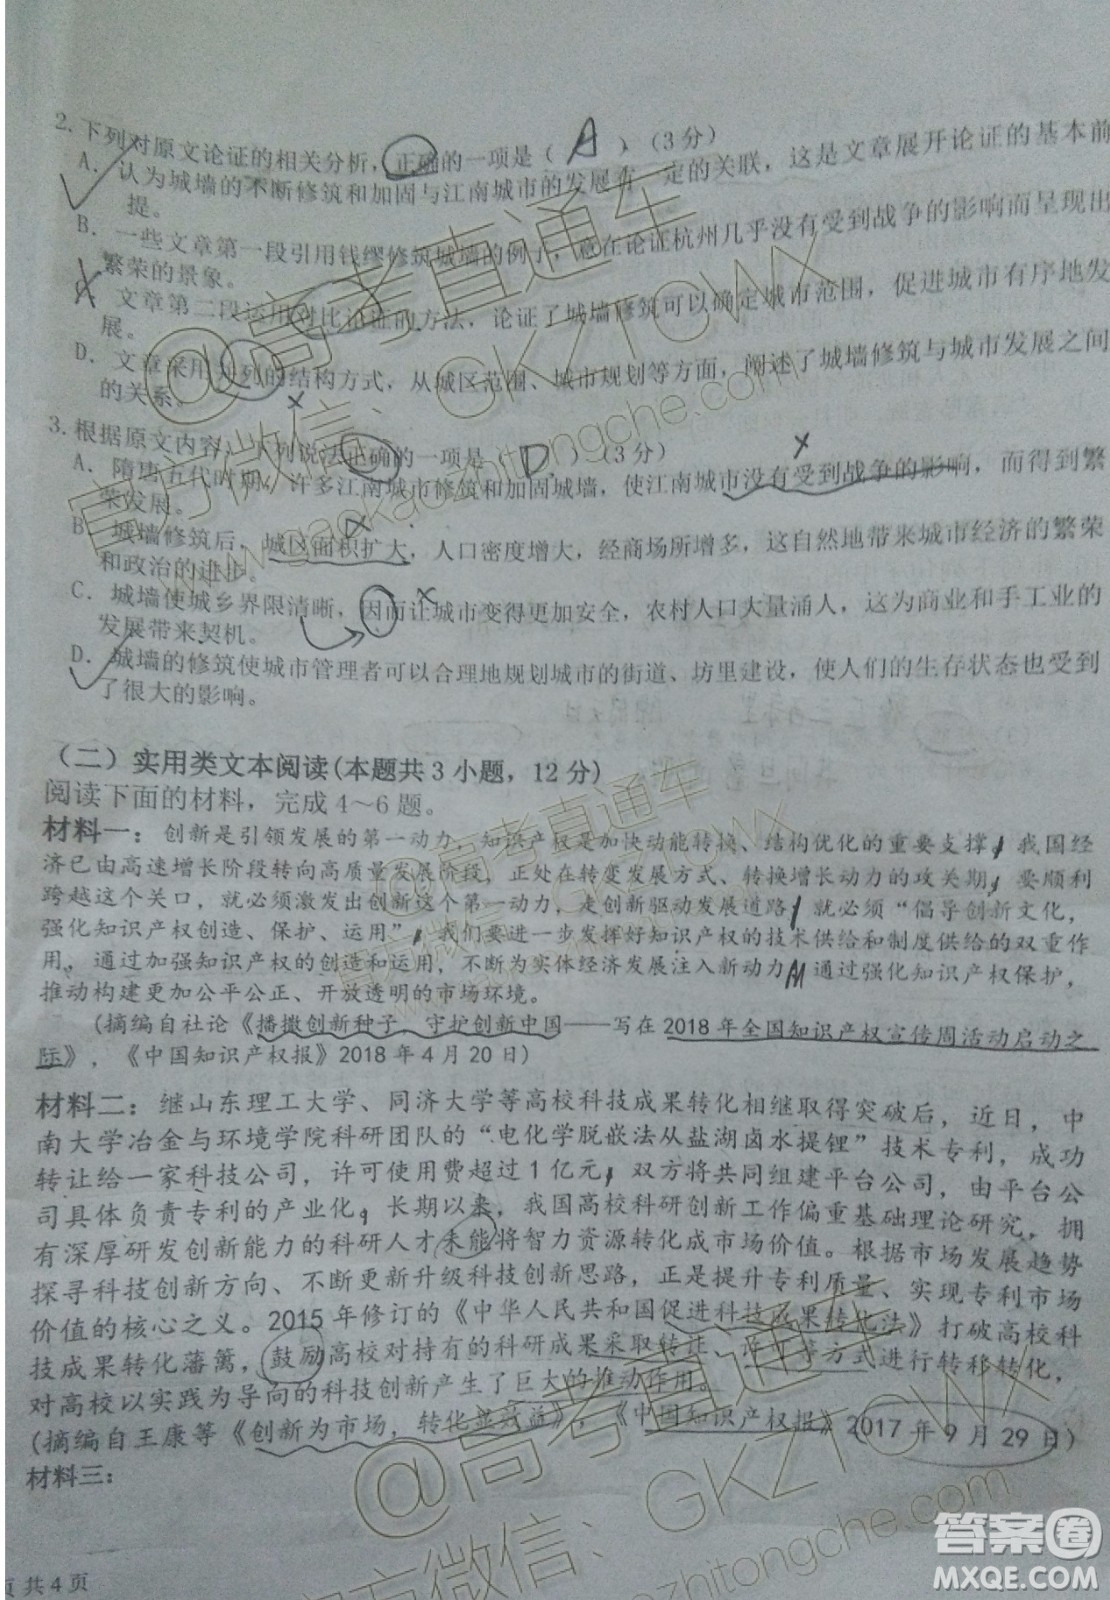 2. 下列对原文论证的相关分析，正确的一项是（ A ）（3分）
A. 认为城墙的不断修筑和加固与江南城市的发展有一定的关联，这是文章展开论证的基本前
提。
B. 一些文章第一段引用钱镠修筑城墙的例子，意在论证杭州几乎没有受到战争的影响而呈现出
繁荣的景象。
文章第二段运用对比论证的方法，论证了城墙修筑可以确定城市范围，促进城市有序地发
展。
D. 文章采用并列的结构方式，从城区范围、城市规划等方面，阐述了城墙修筑与城市发展之间
的关系。
3. 根据原文内容，下列说法正确的一项是（ D ）（3分）
A. 隋唐五代时期，许多江南城市修筑和加固城墙，使江南城市没有受到战争的影响，而得到繁
荣发展。
B. 城墙修筑后，城区面积扩大，人口密度增大，经商场所增多，这自然地带来城市经济的繁荣
和政治的进步。
C. 城墙使城乡界限清晰，因而让城市变得更加安全，农村人口大量涌入，这为商业和手工业的
发展带来契机。
D. 城墙的修筑使城市管理者可以合理地规划城市的街道、坊里建设，使人们的生存状态也受到
了很大的影响。
（二）实用类文本阅读(本题共3小题，12分)
阅读下面的材料，完成4～6题。
材料一：创新是引领发展的第一动力，知识产权是加快动能转换、结构优化的重要支撑，我国经
济已由高速增长阶段转向高质量发展阶段，正处在转变发展方式、转换增长动力的攻关期，要顺利
跨越这个关口，就必须激发出创新这个第一动力，走创新驱动发展道路，就必须“倡导创新文化，
强化知识产权创造、保护、运用”，我们要进一步发挥好知识产权的技术供给和制度供给的双重作
用，通过加强知识产权的创造和运用，不断为实体经济发展注入新动力，通过强化知识产权保护，
推动构建更加公平公正、开放透明的市场环境。
(摘编自社论《播撒创新种子，守护创新中国——写在2018年全国知识产权宣传周活动启动之
际》，《中国知识产权报》2018年4月20日)
材料二：继山东理工大学、同济大学等高校科技成果转化相继取得突破后，近日，中
南大学冶金与环境学院科研团队的“电化学脱嵌法从盐湖卤水提锂”技术专利，成功
转让给一家科技公司，许可使用费超过1亿元，双方将共同组建平台公司，由平台公
司具体负责专利的产业化。长期以来，我国高校科研创新工作偏重基础理论研究，拥
有深厚研发创新能力的科研人才未能将智力资源转化成市场价值。根据市场发展趋势
探寻科技创新方向、不断更新升级科技创新思路，正是提升专利质量、实现专利市场
价值的核心之义。2015年修订的《中华人民共和国促进科技成果转化法》打破高校科
技成果转化藩篱，鼓励高校对持有的科研成果采取转让、许可等方式进行转移转化，
对高校以实践为导向的科技创新产生了巨大的推动作用。
(摘编自王康等《创新为市场，转化显效益》，《中国知识产权报》2017年9月29日)
材料三：
页 共4页
@高考直通车
官方微信：GKZTCWX
www.gaokaozhitongche.com
@高考直通车
官方微信：GKZTCWX
@高考直通车
官方微信：GKZTCWX
gaokaozhitongche.com
答案圈
MXQE.COM